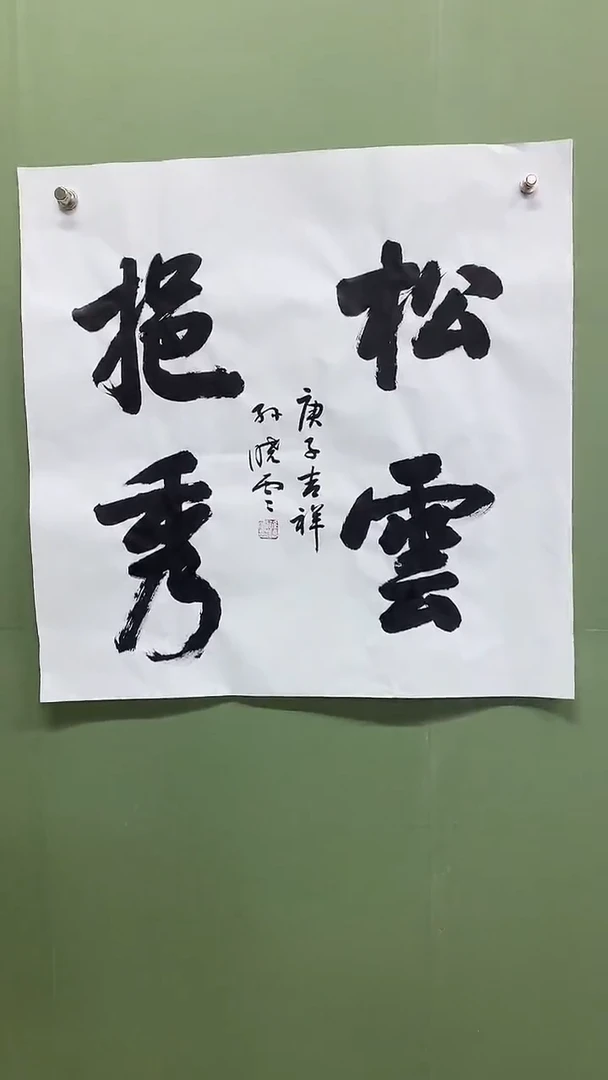 松雲
挹秀
庚子吉祥
孙晓雲